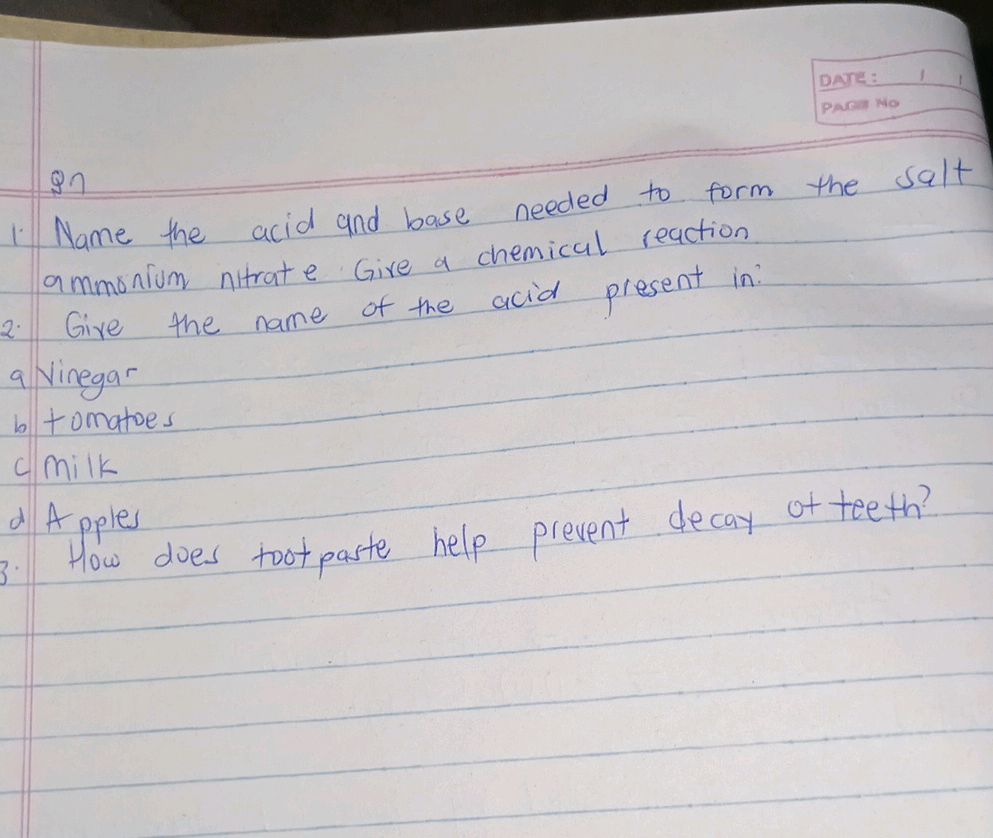 DATE: / /
PAGE No
Qn
1. Name the acid and base needed to form the salt
ammonium nitrate. Give a chemical reaction
2. Give the name of the acid present in:
a Vinegar
b tomatoes
c milk
d Apples
3. How does tootpaste help prevent decay of teeth?